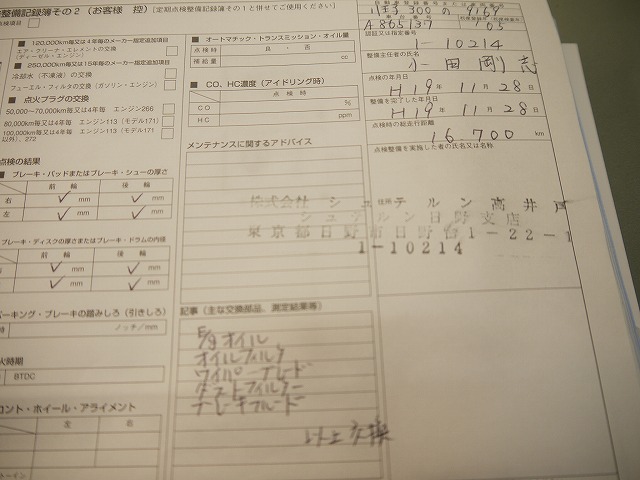 整備記録簿その2（お客様 控）
（定期点検整備記録簿その1と併せてご使用ください）
点検項目
120,000km毎又は4年毎のメーカー指定追加項目
エア・クリーナ・エレメントの交換
（ディーゼル・エンジン）
250,000km毎又は15年毎のメーカー指定追加項目
冷却水（不凍液）の交換
フューエル・フィルタの交換（ガソリン・エンジン）
点火プラグの交換
50,000～70,000km毎又は4年毎 エンジン266
80,000km毎又は4年毎 エンジン113（モデル171）
100,000km毎又は4年毎 エンジン113（モデル171
以外）, 272
点検の結果
ブレーキ・パッドまたはブレーキ・シューの厚さ
前輪 後輪
右 ✓ mm ✓ mm
左 ✓ mm ✓ mm
ブレーキ・ディスクの厚さまたはブレーキ・ドラムの内径
前輪 後輪
✓ mm ✓ mm
✓ mm ✓ mm
パーキング・ブレーキの踏みしろ（引きしろ）
ノッチ/mm
火時期
BTDC
ロント・ホイール・アライメント
左 右
オートマチック・トランスミッション・オイル量
点検時 良・否
補給量 cc
CO、HC濃度（アイドリング時）
点検時
CO %
HC ppm
メンテナンスに関するアドバイス
記事（主な交換部品、測定結果等）
E/gオイル
オイルフィルタ
ワイパーブレード
ダストフィルター
ブレーキフルード
以上交換
自動車登録番号または車両番号
300 の 9169
車台番号
A 865137
105
認証又は指定番号
1-10214
整備主任者の氏名
小田 剛志
点検の年月日
H19年 11月 28日
整備を完了した年月日
H19年 11月 28日
点検時の総走行距離
16,700 km
点検整備を実施した者の氏名又は名称
住所
株式会社 シュテルン高井戸
シュテルン日野支店
東京都日野市日野台1-22-1
1-10214